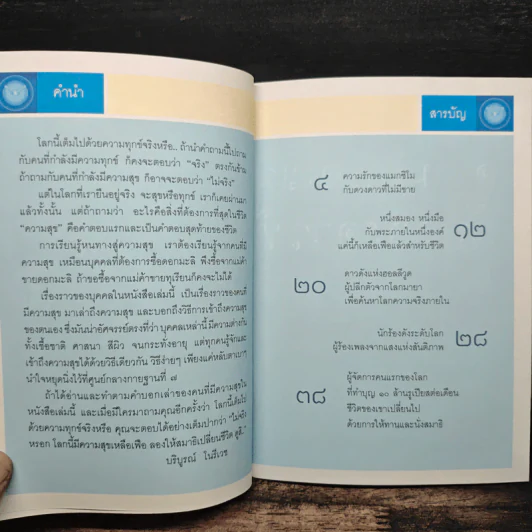 คำนำ
โลกนี้เต็มไปด้วยความทุกข์จริงหรือ.. ถ้านำคำถามนี้ไปถาม
กับคนที่กำลังมีความทุกข์ ก็คงจะตอบว่า “จริง” ตรงกันข้าม
ถ้าถามกับคนที่กำลังมีความสุข ก็อาจจะตอบว่า “ไม่จริง”
แต่ในโลกที่เรายืนอยู่จริง จะสุขหรือทุกข์ เราก็เคยผ่านมา
แล้วทั้งนั้น แต่ถ้าถามว่า อะไรคือสิ่งที่ต้องการที่สุดในชีวิต
“ความสุข” คือคำตอบแรกและเป็นคำตอบสุดท้ายของชีวิต
การเรียนรู้หนทางสู่ความสุข เราต้องเรียนรู้จากคนที่มี
ความสุข เหมือนบุคคลที่ต้องการซื้อดอกมะลิ พึงซื้อจากแม่ค้า
ขายดอกมะลิ ถ้าขอซื้อจากแม่ค้าขายทุเรียนก็คงจะไม่ได้
เรื่องราวของบุคคลในหนังสือเล่มนี้ เป็นเรื่องราวของคนที่
มีความสุข มาเล่าถึงความสุข และบอกถึงวิธีการเข้าถึงความสุข
ของตนเอง ซึ่งมันน่าอัศจรรย์ตรงที่ว่า บุคคลเหล่านี้ มีความต่างกัน
ทั้งเชื้อชาติ ศาสนา สีผิว จนกระทั่งอายุ แต่ทุกคนรู้จักและ
เข้าถึงความสุขได้ด้วยวิธีเดียวกัน วิธีง่ายๆ เพียงแค่หลับตาเบาๆ
นำใจหยุดนิ่งไว้ที่ศูนย์กลางกายฐานที่ ๗
ถ้าได้อ่านและทำตามคำบอกเล่าของคนที่มีความสุขใน
หนังสือเล่มนี้ และเมื่อมีใครมาถามคุณอีกครั้งว่า โลกนี้เต็มไป
ด้วยความทุกข์จริงหรือ คุณจะตอบได้อย่างเต็มปากว่า “ไม่จริง
หรอก โลกนี้มีความสุขเหลือเฟือ ลองให้สมาธิเปลี่ยนชีวิต ดูสิ..”
บริบูรณ์ โนรีเวช
สารบัญ
๔
ความรักของแมกซิโม
กับดวงดาวที่ไม่มีขาย
หนึ่งสมอง หนึ่งมือ
กับพระภายในหนึ่งองค์
แค่นี้ก็เหลือเฟือแล้วสำหรับชีวิต
๑๒
๒๐
ดาวดังแห่งฮอลลีวูด
ผู้ปลีกตัวจากโลกมายา
เพื่อค้นหาโลกความจริงภายใน
นักร้องดังระดับโลก
ผู้ร้องเพลงจากแสงแห่งสันติภาพ
๒๘
๓๘
ผู้จัดการคนแรกของโลก
ที่ทำบุญ ๑๐ ล้านรูเปียสต่อเดือน
ชีวิตของเขาเปลี่ยนไป
ด้วยการให้ทานและนั่งสมาธิ